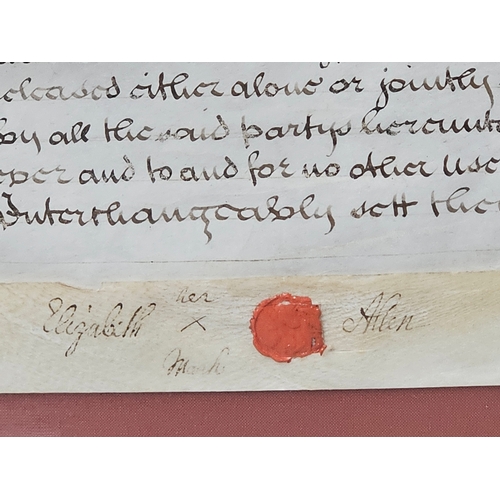 released either alone or jointly
by all the said partys hereunto
ever and to and for no other Use
Interchangeably sett their
her
Elizabeth × Allen
Mark